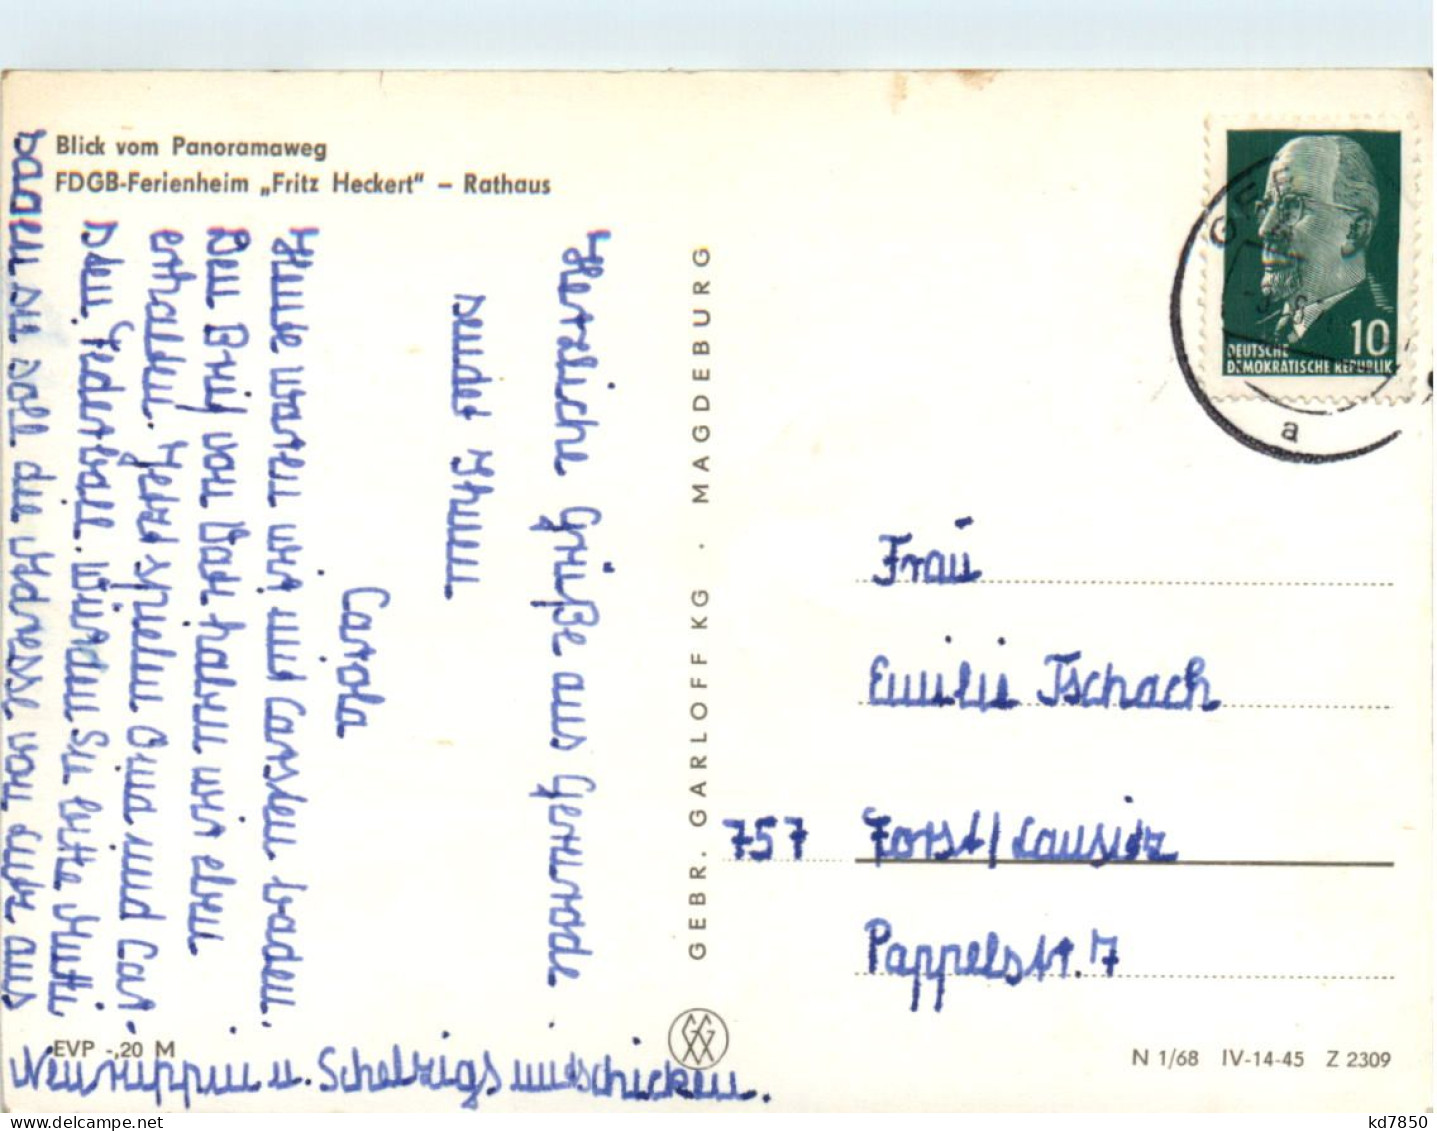 Blick vom Panoramaweg
FDGB-Ferienheim „Fritz Heckert“ – Rathaus
Herzliche Grüße aus Gernrode
sendet Ihnen
Carola
Heute waren wir mit Carsten baden.
Den Brief von Dan haben wir eben
erhalten. Jetzt spielen Oma und Car-
sten Federball. Würden Sie bitte Mutti
sagen sie soll die Adresse von aus
Neuruppin u. mitschicken.
GEBR. GARLOFF KG · MAGDEBURG
10
DEUTSCHE
DEMOKRATISCHE REPUBLIK
a
Frau
Emilie Tschach
757 Forst/Lausitz
Pappelstr. 7
EVP -,20 M
N 1/68 IV-14-45 Z 2309
kd7850